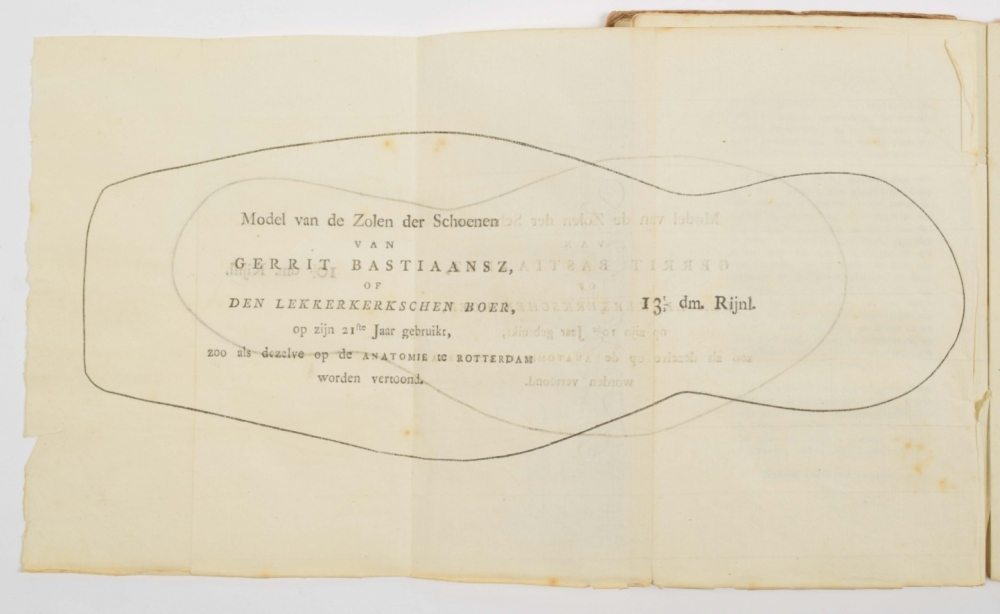 Model van de Zolen der Schoenen
VAN
GERRIT BASTIAANSZ,
OF
DEN LEKKERKERKSCHEN BOER,
op zijn 21ste Jaar gebruikt,
zoo als dezelve op de ANATOMIE te ROTTERDAM
worden vertoond.
13½ dm. Rijnl.